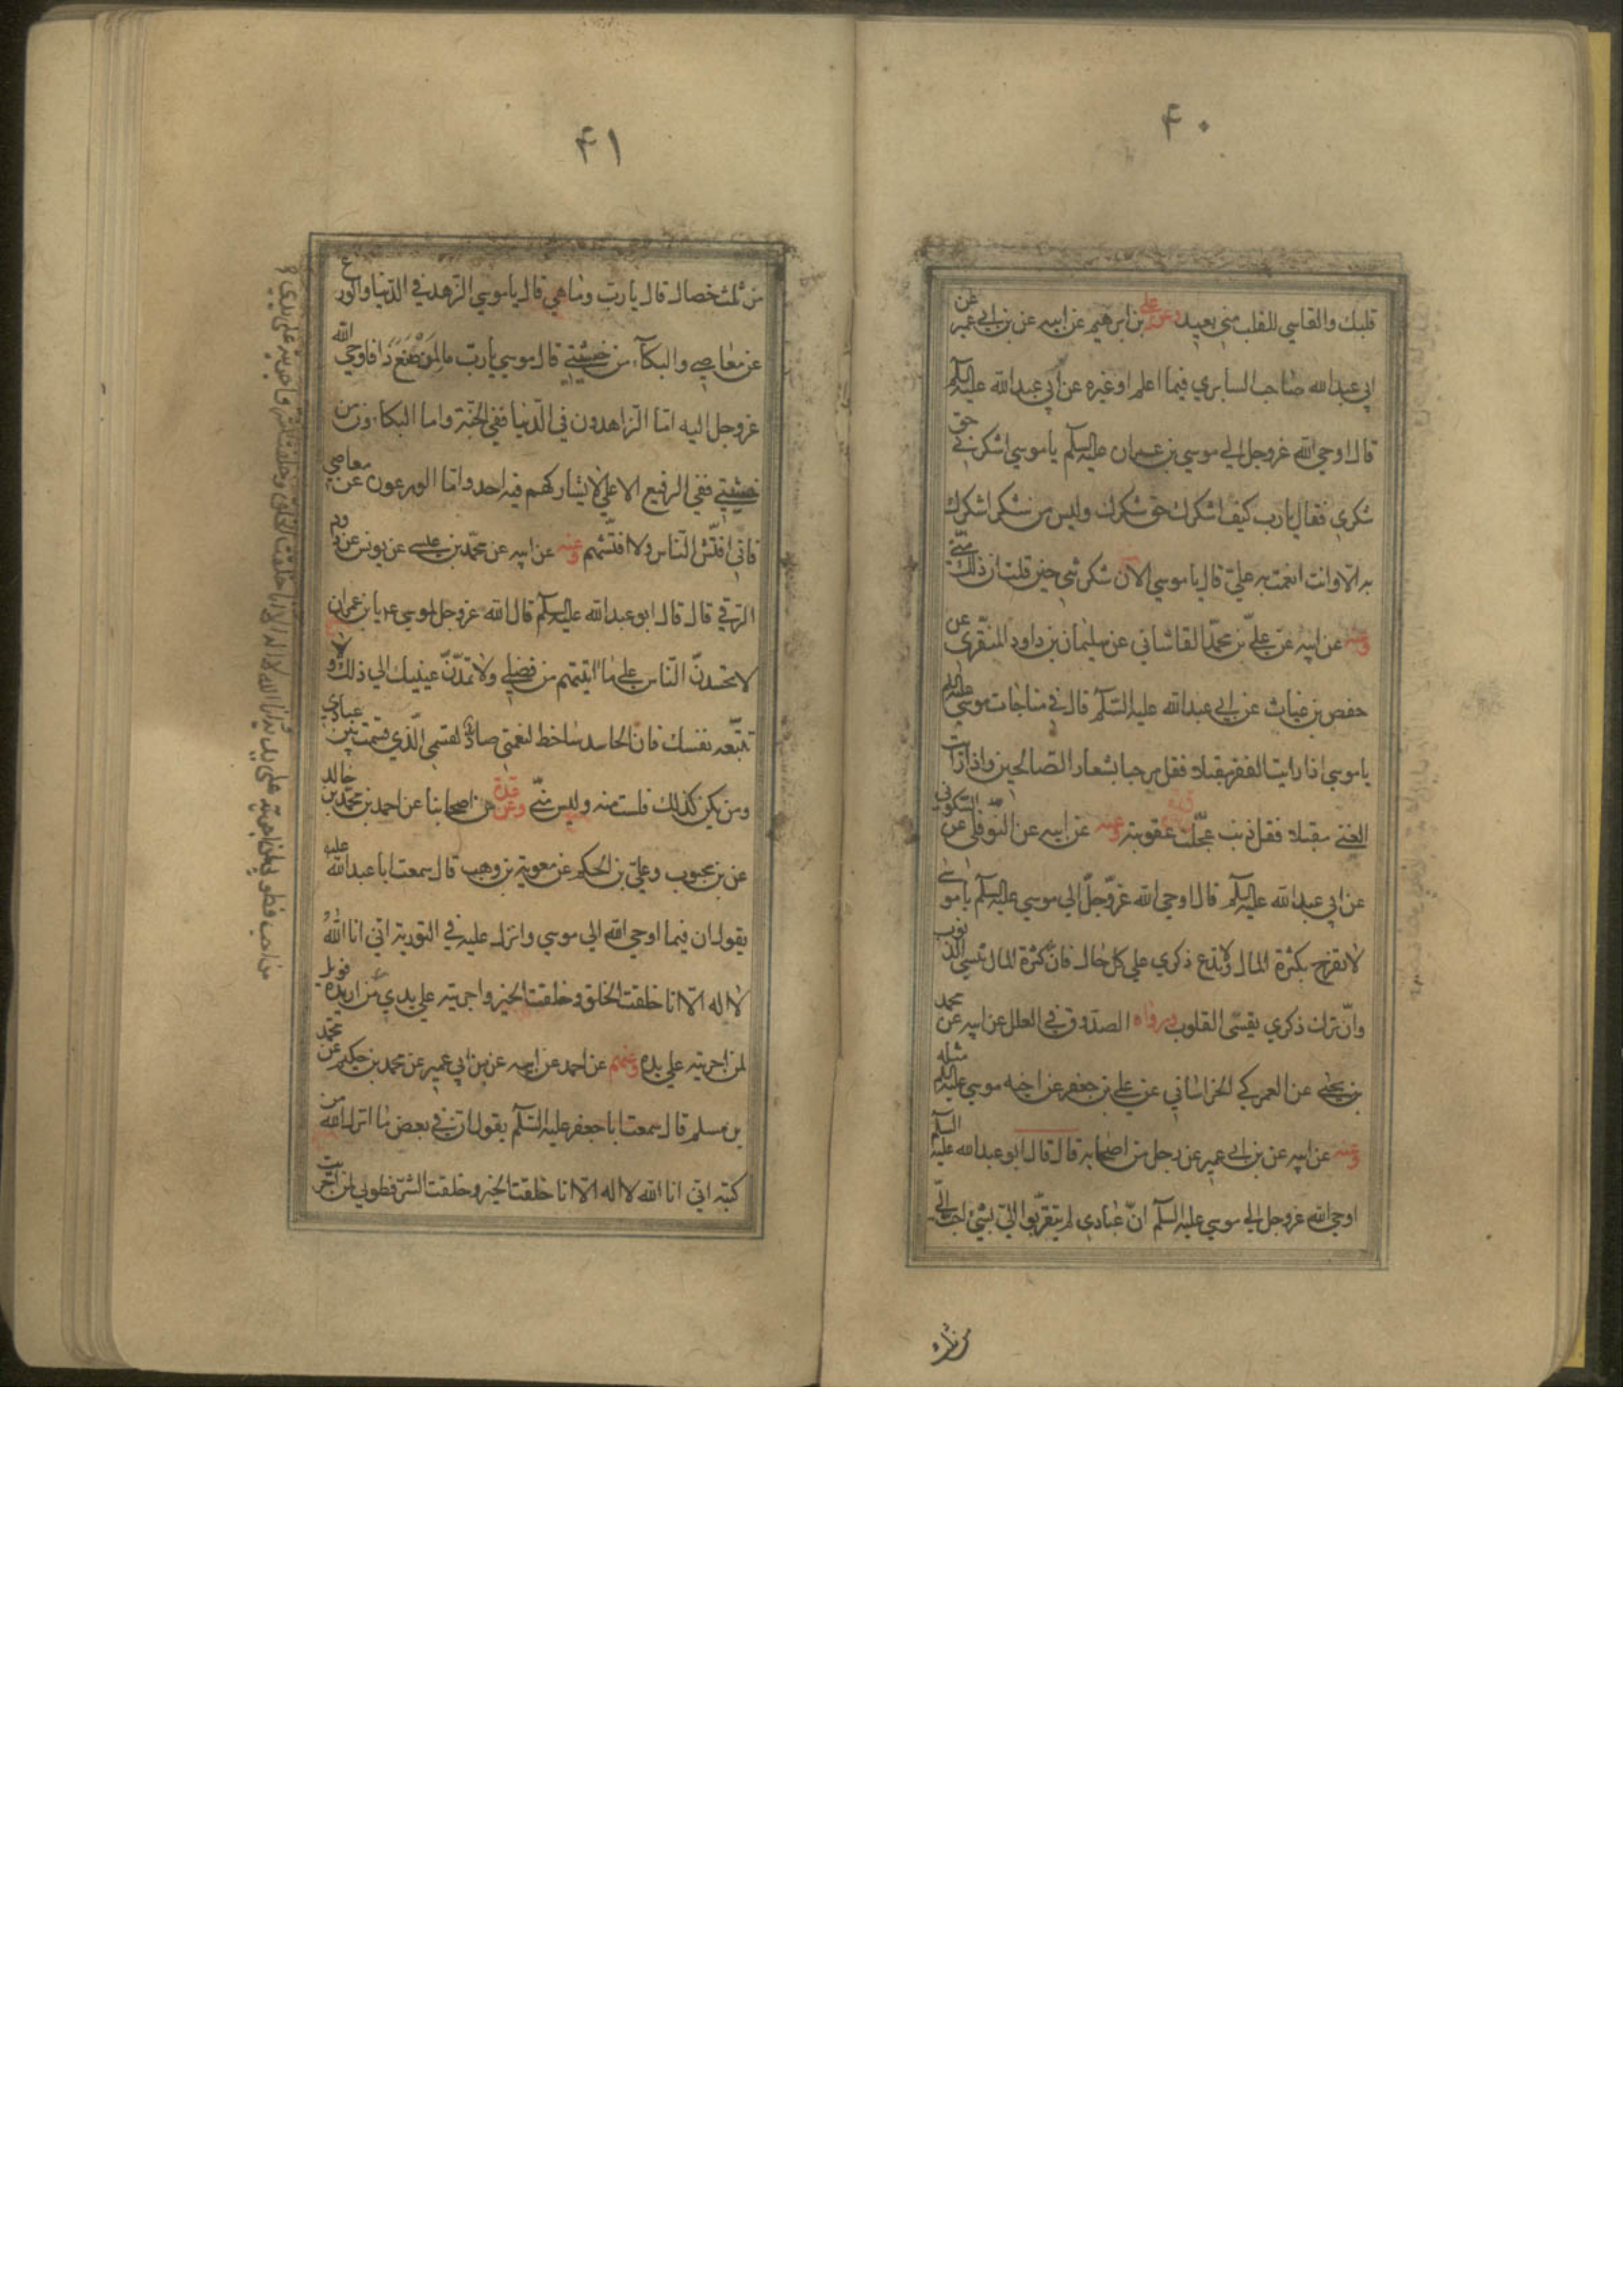 ۴۰
قلبك والقاسي للقلب مني بعيد وعن علي بن ابرهيم عن ابيه عن بن ابي عمير عن
ابي عبدالله صاحب السابري فيما اعلم اوغيره عن ابي عبدالله عليه السلم
قال اوحي الله عزوجل الي موسي بن عمران عليه السلم يا موسي اشكرني حق
شكري فقال يارب كيف اشكرك حق شكرك وليس من شكر اشكرك
به الا وانت انعمت به علي قال يا موسي الان شكرتني حين قلت ان ذلك منّي
وعنه عن ابيه عن علي بن محمد القاشاني عن سليمان بن داود المنقري عن
حفص بن غياث عن ابي عبدالله عليه السلم قال في مناجات موسي عليه السلم
يا موسي اذا رايت الفقر مقبلا فقل مرحبا بشعار الصالحين واذا رايت
الغني مقبلا فقل ذنب عجّلت عقوبته وعنه عن ابيه عن النوفلي عن السكوني
عن ابي عبدالله عليه السلم قال اوحي الله عزّوجلّ الي موسي عليه السلم يا موسي
لا تفرح بكثرة المال ولا تدع ذكري علي كل حال فان كثرة المال تنسي الذنوب
وانّ ترك ذكري يقسي القلوب ورواه الصدوق في العلل عن ابيه عن محمد
بن يحيي عن العمركي الخراساني عن علي بن جعفر عن اخيه موسي عليه السلم مثله
وعنه عن ابيه عن بن ابي عمير عن رجل من اصحابه قال قال ابوعبدالله عليه السلم
اوحي الله عزوجل الي موسي عليه السلم انّ عبادي لم يتقرّبوا اليّ بشيء احبّ اليّ
من ثلاث
۴۱
من ثلث خصال قال يا ربّ وما هي قال يا موسي الزهد في الدنيا والورع
عن معاصي والبكاء من خشيتي قال موسي يا ربّ ما لمن صنع ذا فاوحي الله
عزوجل اليه امّا الزاهدون في الدّنيا ففي الجنّة واما البكاءون من
خشيتي ففي الرفيع الاعلي لا يشاركهم فيه احد واما الورعون عن معاصي
فاني افتّش النّاس ولا افتّشهم وعنه عن ابيه عن محمّد بن عيسي عن يونس عن داود
الرقي قال قال ابو عبدالله عليه السلم قال الله عزوجل لموسي يا بن عمران
لا تحسدنّ النّاس علي ما اتيتهم من فضلي ولا تمدّنّ عينيك الي ذلك ولا
تتبّعه نفسك فان الحاسد ساخط لنعمتي صادّ لقسمي الّذي قسمت بين عبادي
ومن يكن كذلك فلست منه وليس منّي وعن عدة من اصحابنا عن احمد بن محمّد بن خالد
عن بن محبوب وعليّ بن الحكم عن معوية بن وهب قال سمعت ابا عبدالله عليه
يقول ان فيما اوحي الله الي موسي وانزل عليه في التورية انّي انا الله
لا اله الّا انا خلقت الخلق وخلقت الخير واجريته علي يدي من اريده فويل
لمن اجريته علي يده وعنهم عن احمد عن ابيه عن بن ابي عمير عن محمد بن حكيم عن محمّد
بن مسلم قال سمعت ابا جعفر عليه السلم يقول ان في بعض ما انزل الله من
كتبه انّي انا الله لا اله الّا انا خلقت الخير وخلقت الشرّ فطوبي لمن اجريت